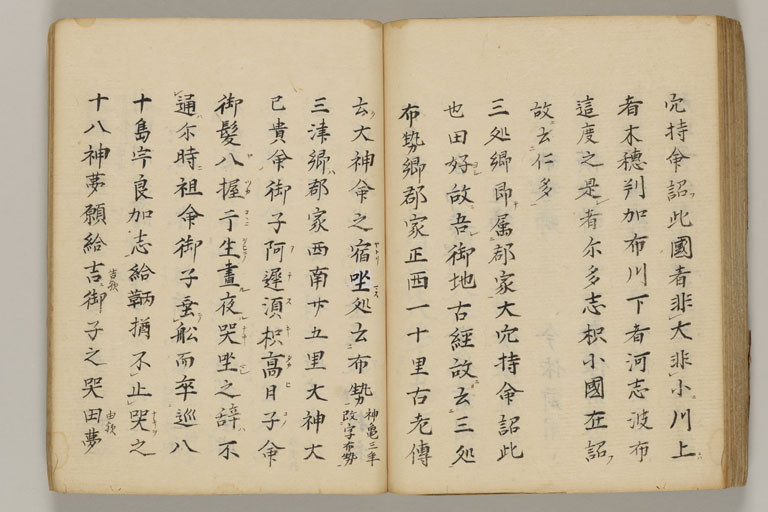 穴持命詔此國者非大非小川上
者木穂判加布川下者河志波布
這度之是者尓多志枳小國在詔
故云仁多
三処郷即属郡家大穴持命詔此
也田好故吾御地古經故云三処
布勢郷郡家正西一十里古老傳
云大神命之宿坐処云布勢 神亀三年
改字布勢
三津郷郡家西南廿五里大神大
已貴命御子阿遲湏枳髙日子命
御髪八握于生晝夜哭坐之辞不
通尓時祖命御子乗舩而率巡八
十島宇良加志給鞆猶不止哭之
十八神夢願給吉御子之哭田夢
告歟
由歟